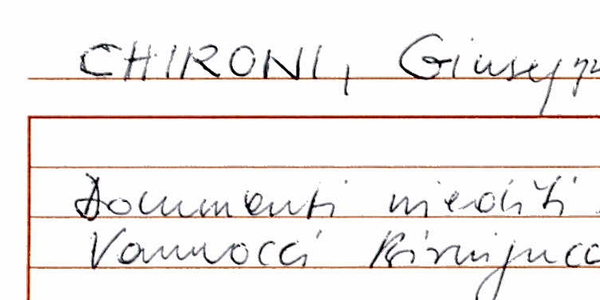 CHIRONI, Giusepp
Documenti inediti
Vannocci Biringucc